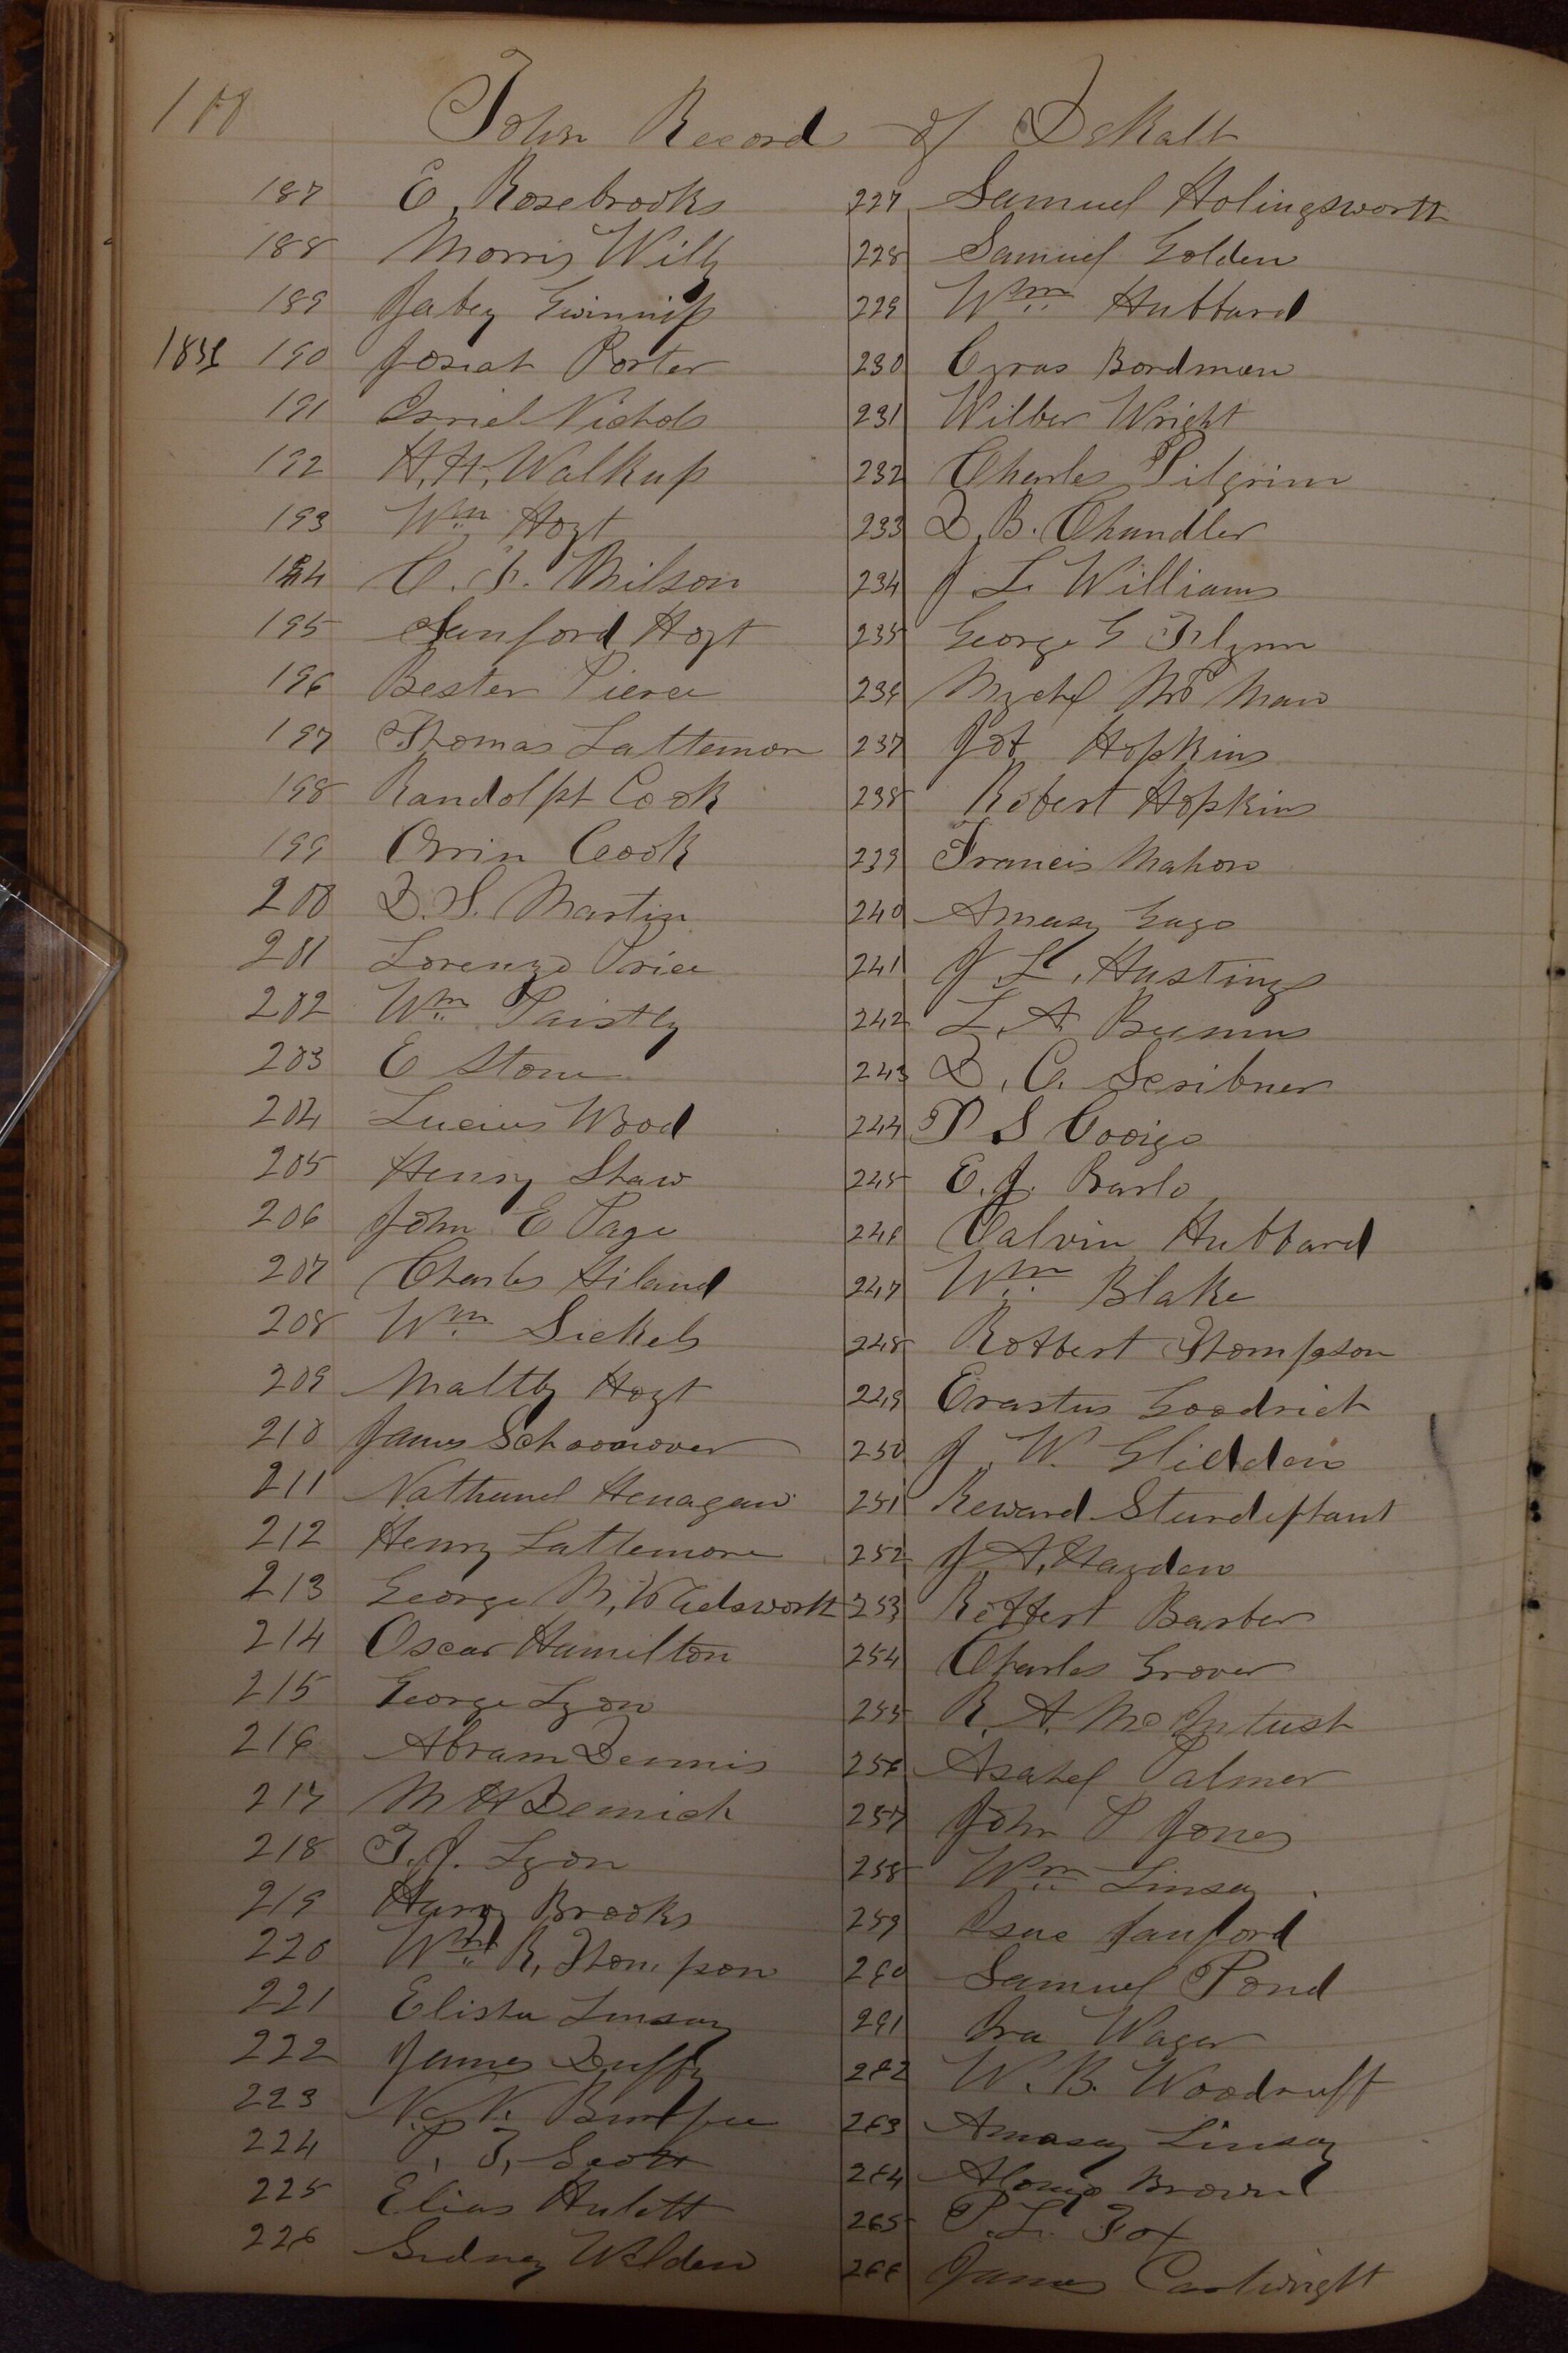 100
Town Record of DeKalb
187 E. Rosebrooks
188 Morris Willy
189 Jabez Gwinnip
1851 190 Josiah Porter
191 Nichols
192 H. H. Walkup
193 Wm Hoyt
194 C. F. Wilson
195 Sanford Hoyt
196 Bester Pierce
197 Thomas Lattemon
198 Randolph Cook
199 Orrin Cook
200 D. S. Martin
201 Lorenzo Price
202 Wm Paistly
203 E Stone
204 Lucius Wood
205 Henry Shaw
206 John E Page
207 Charles Hiland
208 Wm Sickels
209 Maltby Hoyt
210 James Schoonover
211 Nathanel Henagan
212 Henry Lattemore
213 George M. Wadsworth
214 Oscar Hamilton
215 George Lyon
216 Abram Dennis
217 M H Demick
218 T. J. Lyon
219 Harry Brooks
220 Wm R. Thompson
221 Elisha Linsay
222 James Duffy
223 N. N.
224 P. T. Scott
225 Elias Hulett
226 Sidney Walden
227 Samuel Holingsworth
228 Samuel Golden
229 Wm Hubbard
230 Cyrus Bordman
231 Wilber Wright
232 Charles Pilgrim
233 D. B. Chandler
234 J L. Williams
235 George G Flynn
236 Mychel Mc Man
237 Job Hopkins
238 Robert Hopkins
239 Francis Mahon
240 Amasy Gago
241 J L. Hastings
242 L. A
243 D. C. Scribner
244 P S
245 E. J. Barlo
246 Calvin Hubbard
247 Wm Blake
248 Robbert Thompson
249 Erastus Goodrich
250 J. W. Glidden
251 Reward Sturdiphant
252 J. A. Hayden
253 Robbert Barber
254 Charles Grover
255 R. A. McIntush
256 Asahel Palmer
257 John P Jones
258 Wm Linsay
259 Isac Sanford
260 Samuel Pond
261 Ira Wager
262 W. B. Woodruff
263 Amasay Linsay
264 Alonzo Brown
265 P. L. Fox
266 James Cartwright